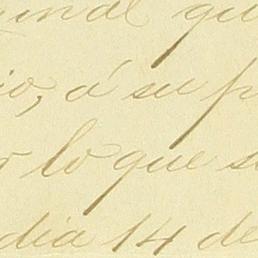 ginal qu
io, á su p
r lo que s
dia 14 de